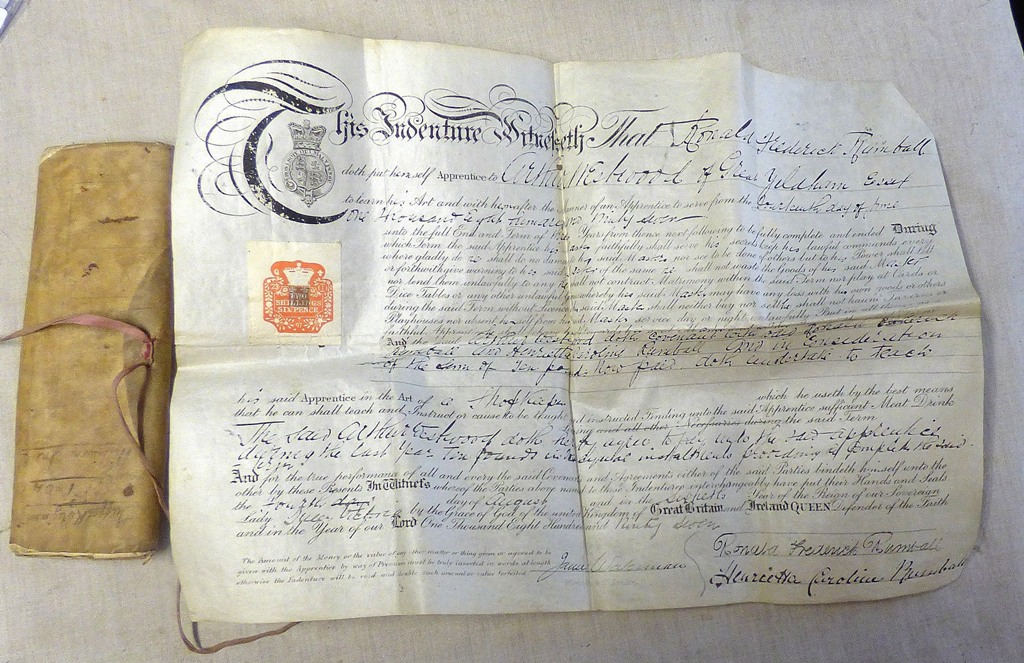 This Indenture Witnesseth That Ronald Frederick Rumball
doth put himself Apprentice to Arthur Westwood of Great Yeldham Essex
to learn his Art and with him after the Manner of an Apprentice to serve from the fourteenth day of June
One thousand eight hundred and ninety seven
unto the full End and Term of Years from thence next following to be fully complete and ended During
which Term the said Apprentice his Master faithfully shall serve his secrets keep his lawful commands every
where gladly do he shall do no damage to his said Master nor see to be done of others but to his Power shall let
or forthwith give warning to his said Master of the same he shall not waste the Goods of his said Master
nor lend them unlawfully to any he shall not contract Matrimony within the said Term nor play at Cards or
Dice Tables or any other unlawful whereby his said Master may have any loss with his own goods or others
during the said Term without Licence said Master shall neither buy nor sell he shall not haunt Taverns or
Playhouses nor absent himself from his said Master's service day or night unlawfully But in
faithful Apprentice
And the said Arthur Westwood doth covenant with the said Ronald Frederick
Rumball and Henrietta Caroline Rumball And in Consideration
of the sum of Ten pounds Now paid doth undertake to teach
his said Apprentice in the Art of a Shopkeeper which he useth by the best means
that he can shall teach and Instruct or cause to be taught and instructed Finding unto the said Apprentice sufficient Meat Drink
and all other Necessaries during the said Term
The said Arthur Westwood doth hereby agree to pay unto the said Apprentice
during the last Year Ten pounds in equal instalments providing he completes the said
term
And for the true performance of all and every the said Covenants and Agreements either of the said Parties bindeth himself unto the
other by these Presents In Witness whereof the Parties above named to these Indentures interchangeably have put their Hands and Seals
the fourth day of August and in the sixtieth Year of the Reign of our Sovereign
Lady Queen Victoria by the Grace of God of the united Kingdom of Great Britain and Ireland QUEEN Defender of the Faith
and in the Year of our Lord One Thousand Eight Hundred and Ninety Seven
TWO
SHILLINGS
SIXPENCE
The Amount of the Money or the value of any other matter or thing given or agreed to be
given with the Apprentice by way of Premium must be truly inserted in words at length
otherwise the Indenture will be void and double such amount or value forfeited
Jane Waterman
Ronald Frederick Rumball
Henrietta Caroline Rumball